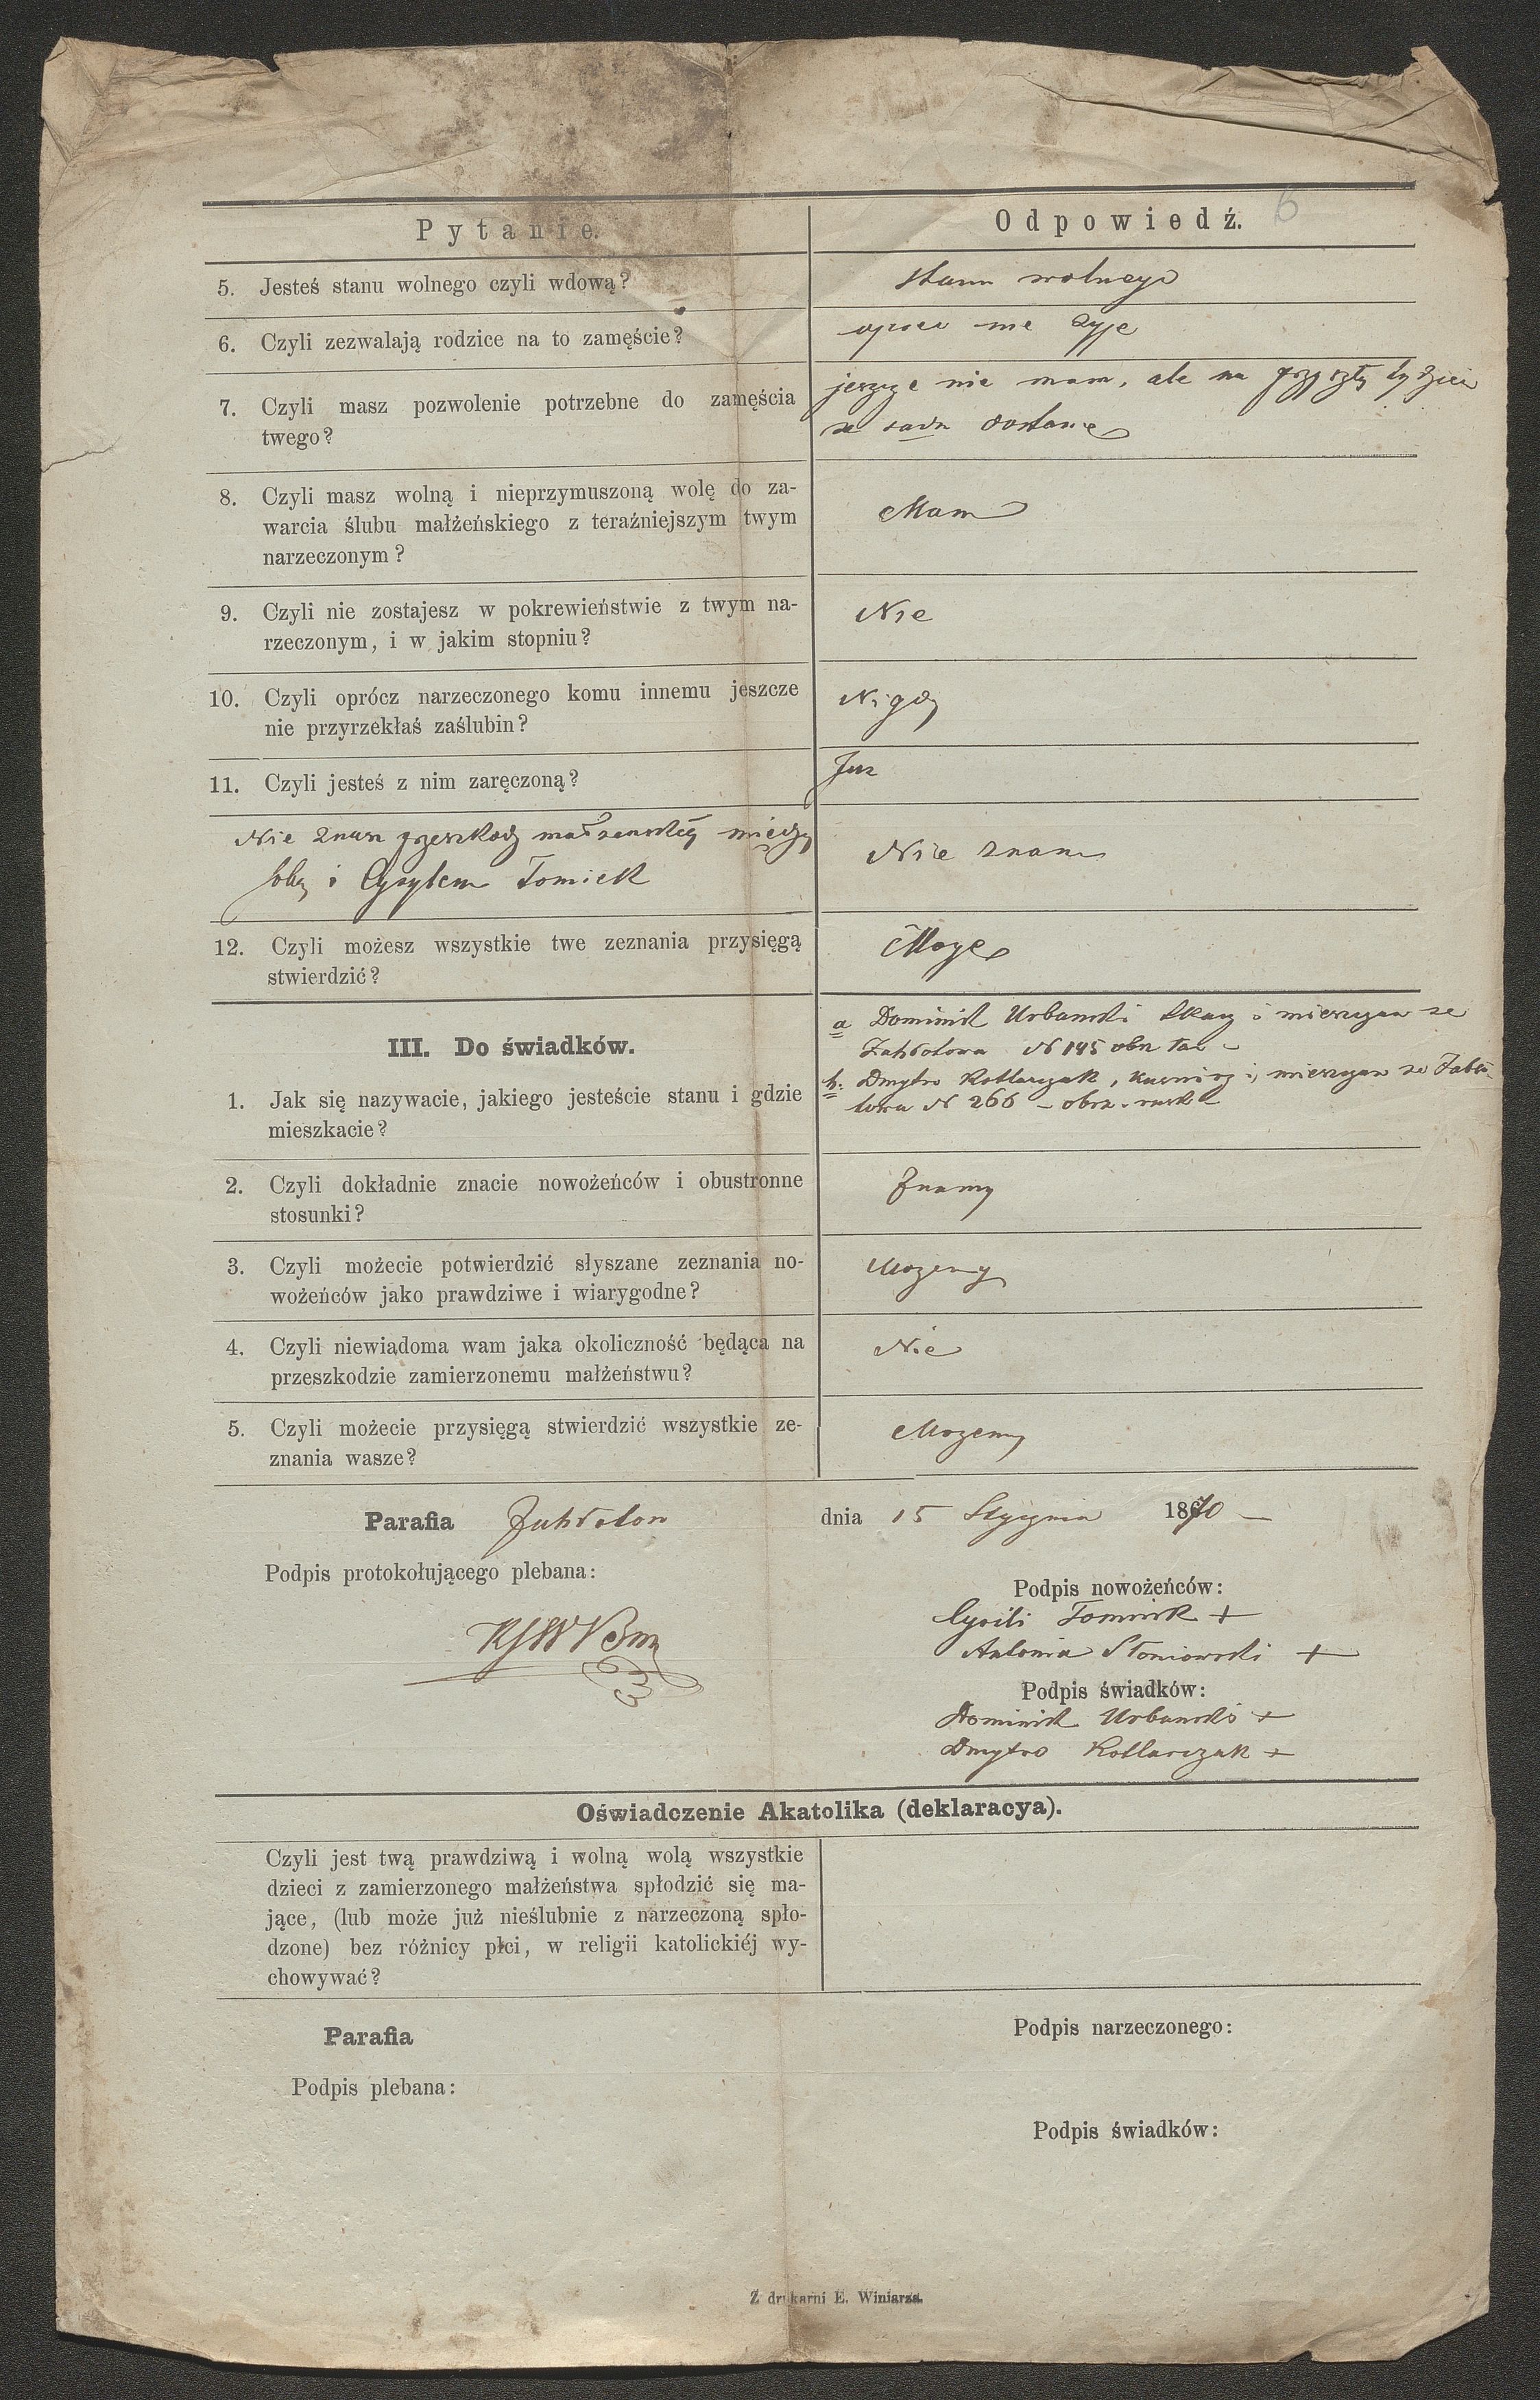 6
Pytanie.
Odpowiedź.
5. Jesteś stanu wolnego czyli wdową?
stanu wolnego
6. Czyli zezwalają rodzice na to zamęście?
nie żyje
7. Czyli masz pozwolenie potrzebne do zamęścia
twego?
jeszcze nie mam, ale na przyszły tydzień
ze sadu dostanę
8. Czyli masz wolną i nieprzymuszoną wolę do za-
warcia ślubu małżeńskiego z teraźniejszym twym
narzeczonym?
Mam
9. Czyli nie zostajesz w pokrewieństwie z twym na-
rzeczonym, i w jakim stopniu?
Nie
10. Czyli oprócz narzeczonego komu innemu jeszcze
nie przyrzekłaś zaślubin?
Nigdy
11. Czyli jesteś z nim zaręczoną?
Juz
Nie znasz przeszkody między
sobą i Cyrylem Tomick
Nie znam
12. Czyli możesz wszystkie twe zeznania przysięgą
stwierdzić?
Mogę
III. Do świadków.
1. Jak się nazywacie, jakiego jesteście stanu i gdzie
mieszkacie?
a Dominik Urbanski tkacz i mieszczan ze
Zabłotowa N 145 obrz łac
b. Dmytro Kotlarczak, i mieszczan ze Zabło-
towa N 266 – obrz.
2. Czyli dokładnie znacie nowożeńców i obustronne
stosunki?
Znamy
3. Czyli możecie potwierdzić słyszane zeznania no-
wożeńców jako prawdziwe i wiarygodne?
Mozemy
4. Czyli niewiadoma wam jaka okoliczność będąca na
przeszkodzie zamierzonemu małżeństwu?
Nie
5. Czyli możecie przysięgą stwierdzić wszystkie ze-
znania wasze?
Mozemy
Parafia Zabłotow dnia 15 Stycznia 1870 —
Podpis protokołującego plebana:
Podpis nowożeńców:
Cyrili Tomick +
Antonia Słoniowski +
Podpis świadków:
Dominik Urbanski +
Dmytro Kotlarczak +
Oświadczenie Akatolika (deklaracya).
Czyli jest twą prawdziwą i wolną wolą wszystkie
dzieci z zamierzonego małżeństwa spłodzić się ma-
jące, (lub może już nieślubnie z narzeczoną spło-
dzone) bez różnicy płci, w religii katolickiéj wy-
chowywać?
Parafia
Podpis narzeczonego:
Podpis plebana:
Podpis świadków:
Z drukarni E. Winiarza.